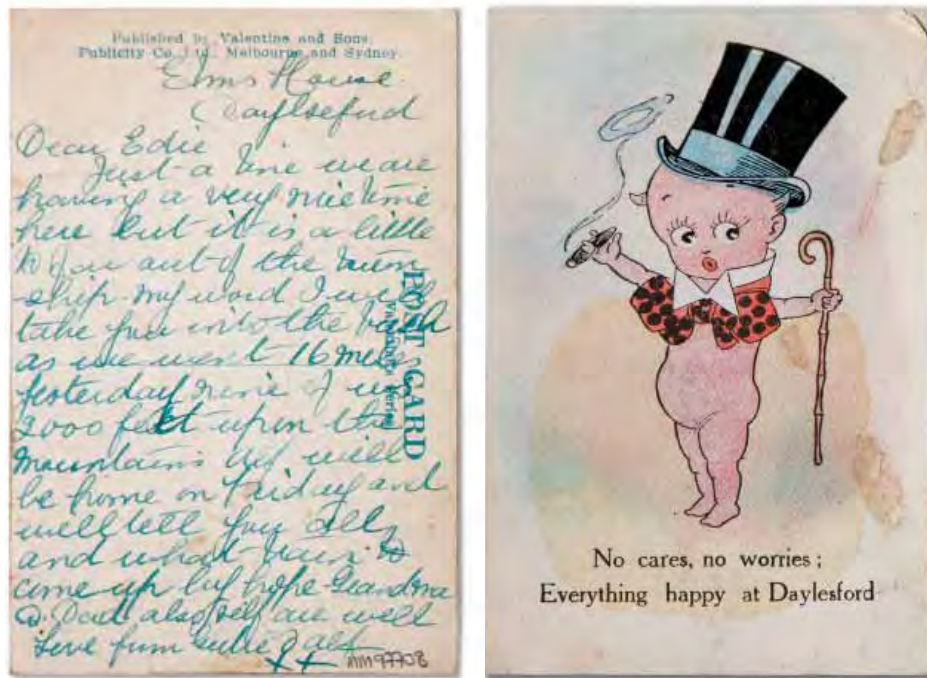 Published by Valentine and Sons,
Publicity Co., Ltd., Melbourne and Sydney.
Elms House
Daylseford
Dear Edie
Just a line we are
having a very nice time
here but it is a little
out of the
ship my word I will
take you into the
as we went 16 miles
yesterday nine of us
2000 feet upon the
mountains will
be home on Friday and
will tell you all
and what
come up by hope Grandma
& Dad also self are well
Love from
POST CARD
MM97708
No cares, no worries ;
Everything happy at Daylesford